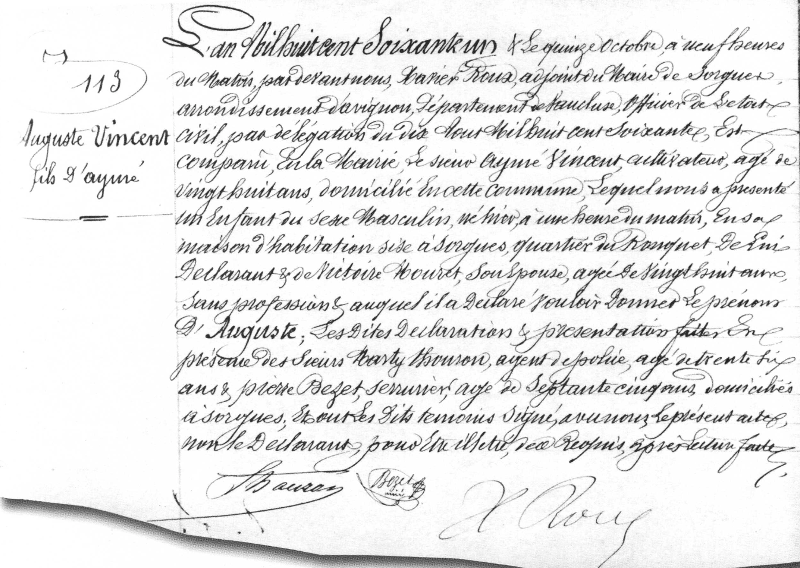 113
Auguste Vincent
fils D'aymé
L'an Mil huit cent Soixante un & le quinze octobre, à neuf heures
du Matin, par devant nous, Xavier Roux, adjoint du Maire de Sorgues,
arrondissement d'avignon, Département de Vaucluse, officier de l'etat
civil, par délégation du dix Aout Mil huit cent Soixante, Est
comparu, En la Mairie, Le sieur aymé Vincent, cultivateur, agé de
vingt huit ans, domicilié En cette commune, Lequel nous a présenté
un Enfant du sexe Masculin, né hier, à une heure du matin, En sa
maison d'habitation sise à Sorgues, quartier du Ronquet, De Lui
Déclarant & de Victoire Mouret, son Epouse, agée De Vingt huit ans
sans profession & auquel il a Déclaré Vouloir Donner Le prénom
D'Auguste; Les Dites Déclaration & présentation faites En
présence des Sieurs Marty Thouzon, agent de police, agé de trente six
ans &, pierre Bezet, serrurier, agé de Septante cinq ans, domiciliés
à Sorgues, Et ont Les Dits temoins Signé, avec nous Le présent acte,
non le Déclarant, pour Etre illetré, de ce Requis, après Lecture faite
Thouzon
Bezet
X Roux